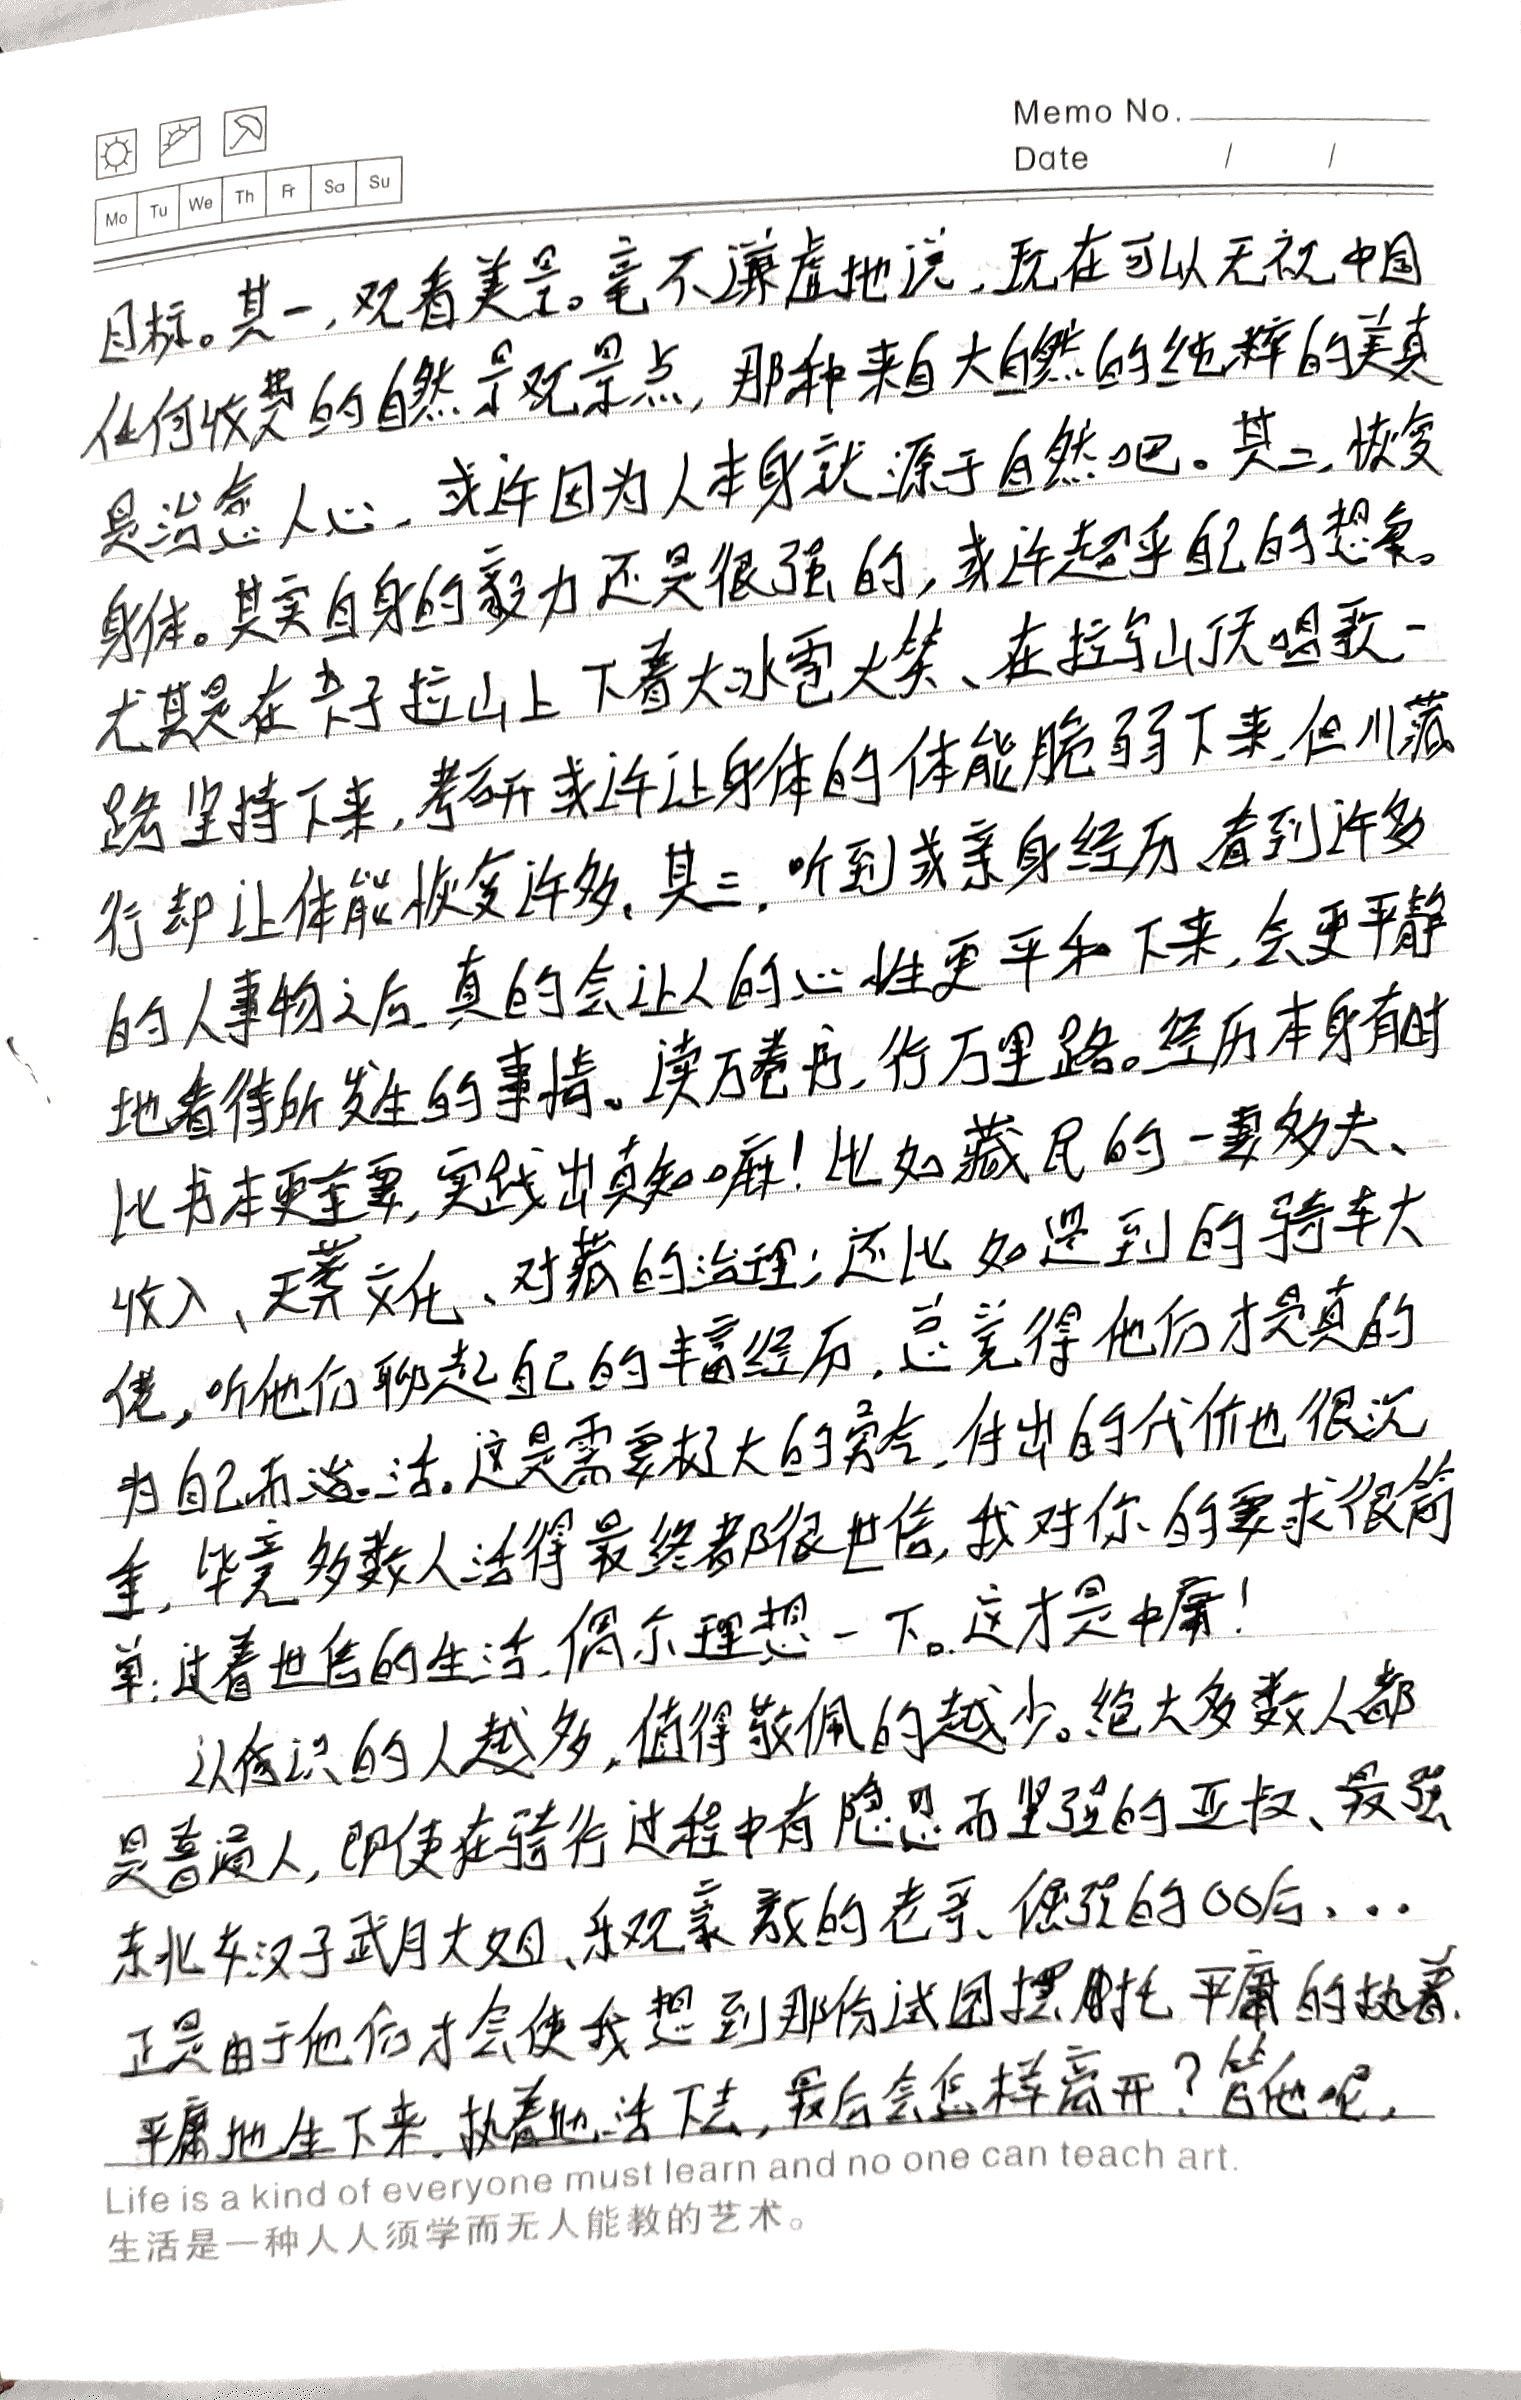 Memo No.
Date / /
Mo Tu We Th Fr Sa Su
目标。其一,观看美景。毫不谦虚地说,现在可以无视中国
任何收费的自然景观景点,那种来自大自然的纯粹的美真
是治愈人心,或许因为人本身就源于自然吧。其二,恢复
身体。其实自身的毅力还是很强的,或许超乎自己的想象。
尤其是在卡子拉山上下着大冰雹大笑、在拉乌山顶唱歌一
路坚持下来,考研或许让身体的体能脆弱下来,但川藏
行却让体能恢复许多。其三,听到或亲身经历、看到许多
的人事物之后,真的会让人的心性更平和下来,会更平静
地看待所发生的事情。读万卷书,行万里路。经历本身有时
比书本更重要,实践出真知嘛!比如藏民的一妻多夫、
收入、天葬文化、对藏的治理;还比如遇到的骑车大
佬,听他们聊起自己的丰富经历,总觉得他们才是真的
为自己而活。这是需要极大的勇气,付出的代价也很沉
重,毕竟多数人活得最终都很世俗,我对你的要求很简
单:过着世俗的生活,偶尔理想一下。这才是中庸!
认识的人越多,值得敬佩的越少。绝大多数人都
是普通人,即使在骑行过程中有隐忍而坚强的亚叔、最强
东北女汉子武月大姐、乐观豪放的老哥、倔强的00后...
正是由于他们才会使我想到那份试图摆脱平庸的执着.
平庸地生下来,执着地活下去,最后会怎样离开?管他呢,
Life is a kind of everyone must learn and no one can teach art.
生活是一种人人须学而无人能教的艺术。